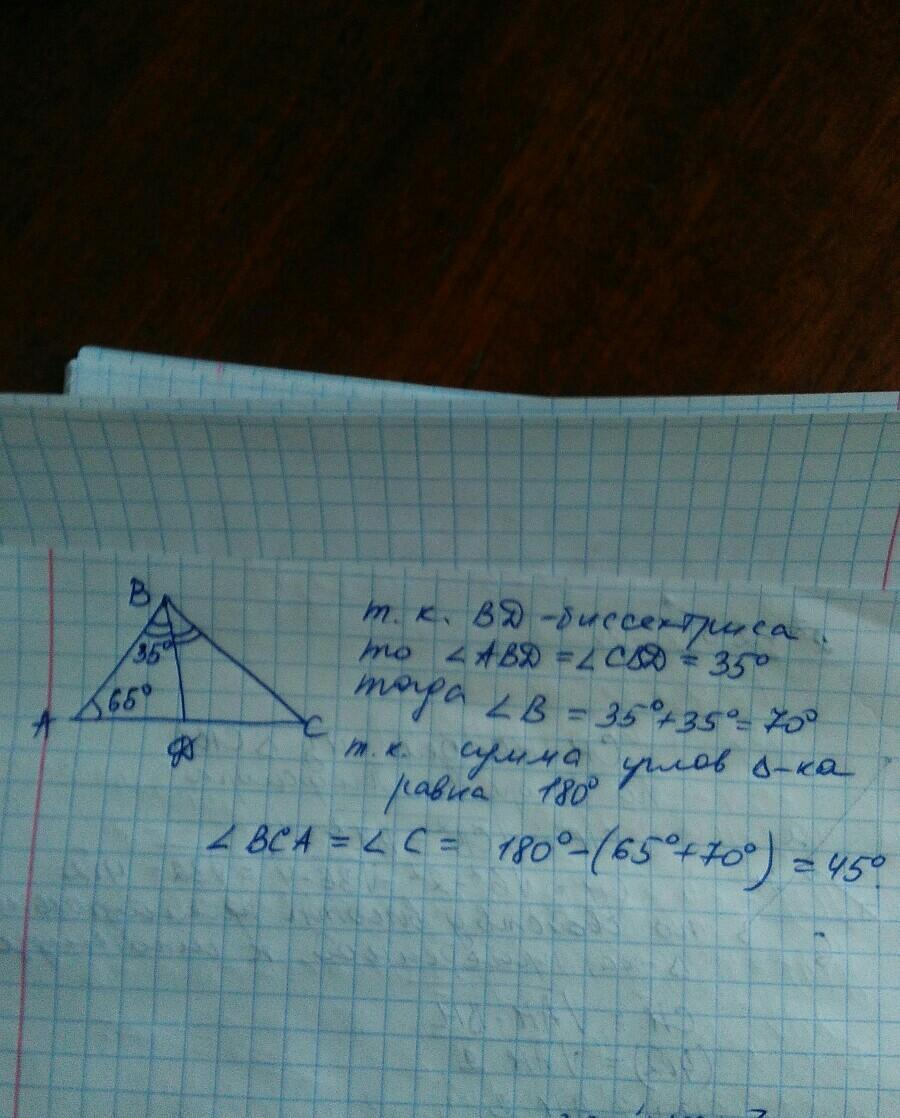 B
35°
65°
A
D
C
т.к. BD - биссектриса
то ∠ABD = ∠CBD = 35°
тогда ∠B = 35°+35°= 70°
т.к. сумма углов Δ-ка
равна 180°
∠BCA = ∠C = 180°-(65°+70°) = 45°.